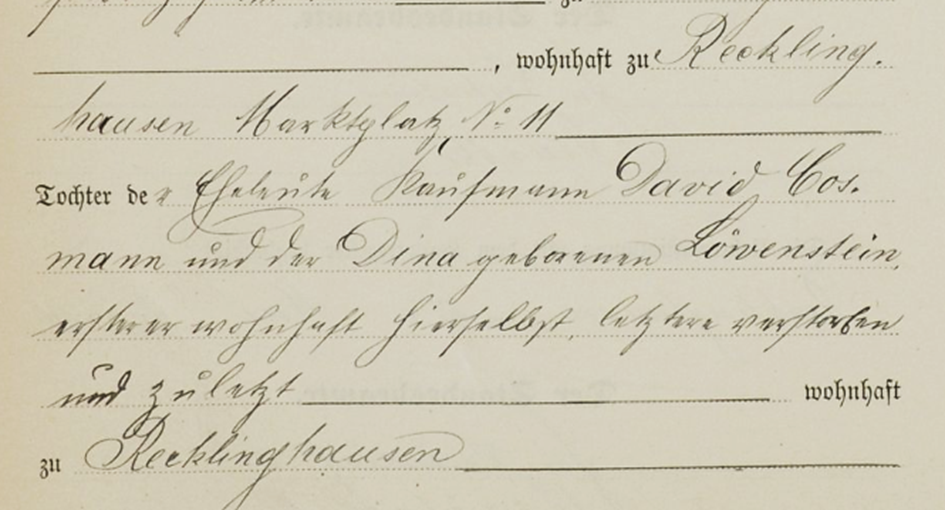 , wohnhaft zu Reckling.
hausen Marktplatz, No 11
Tochter der Eheleute Kaufmann David Cos.
mann und der Dina geborenen Löwenstein,
ersterer wohnhaft hierselbst, letztere verstorben
und zuletzt wohnhaft
zu Recklinghausen